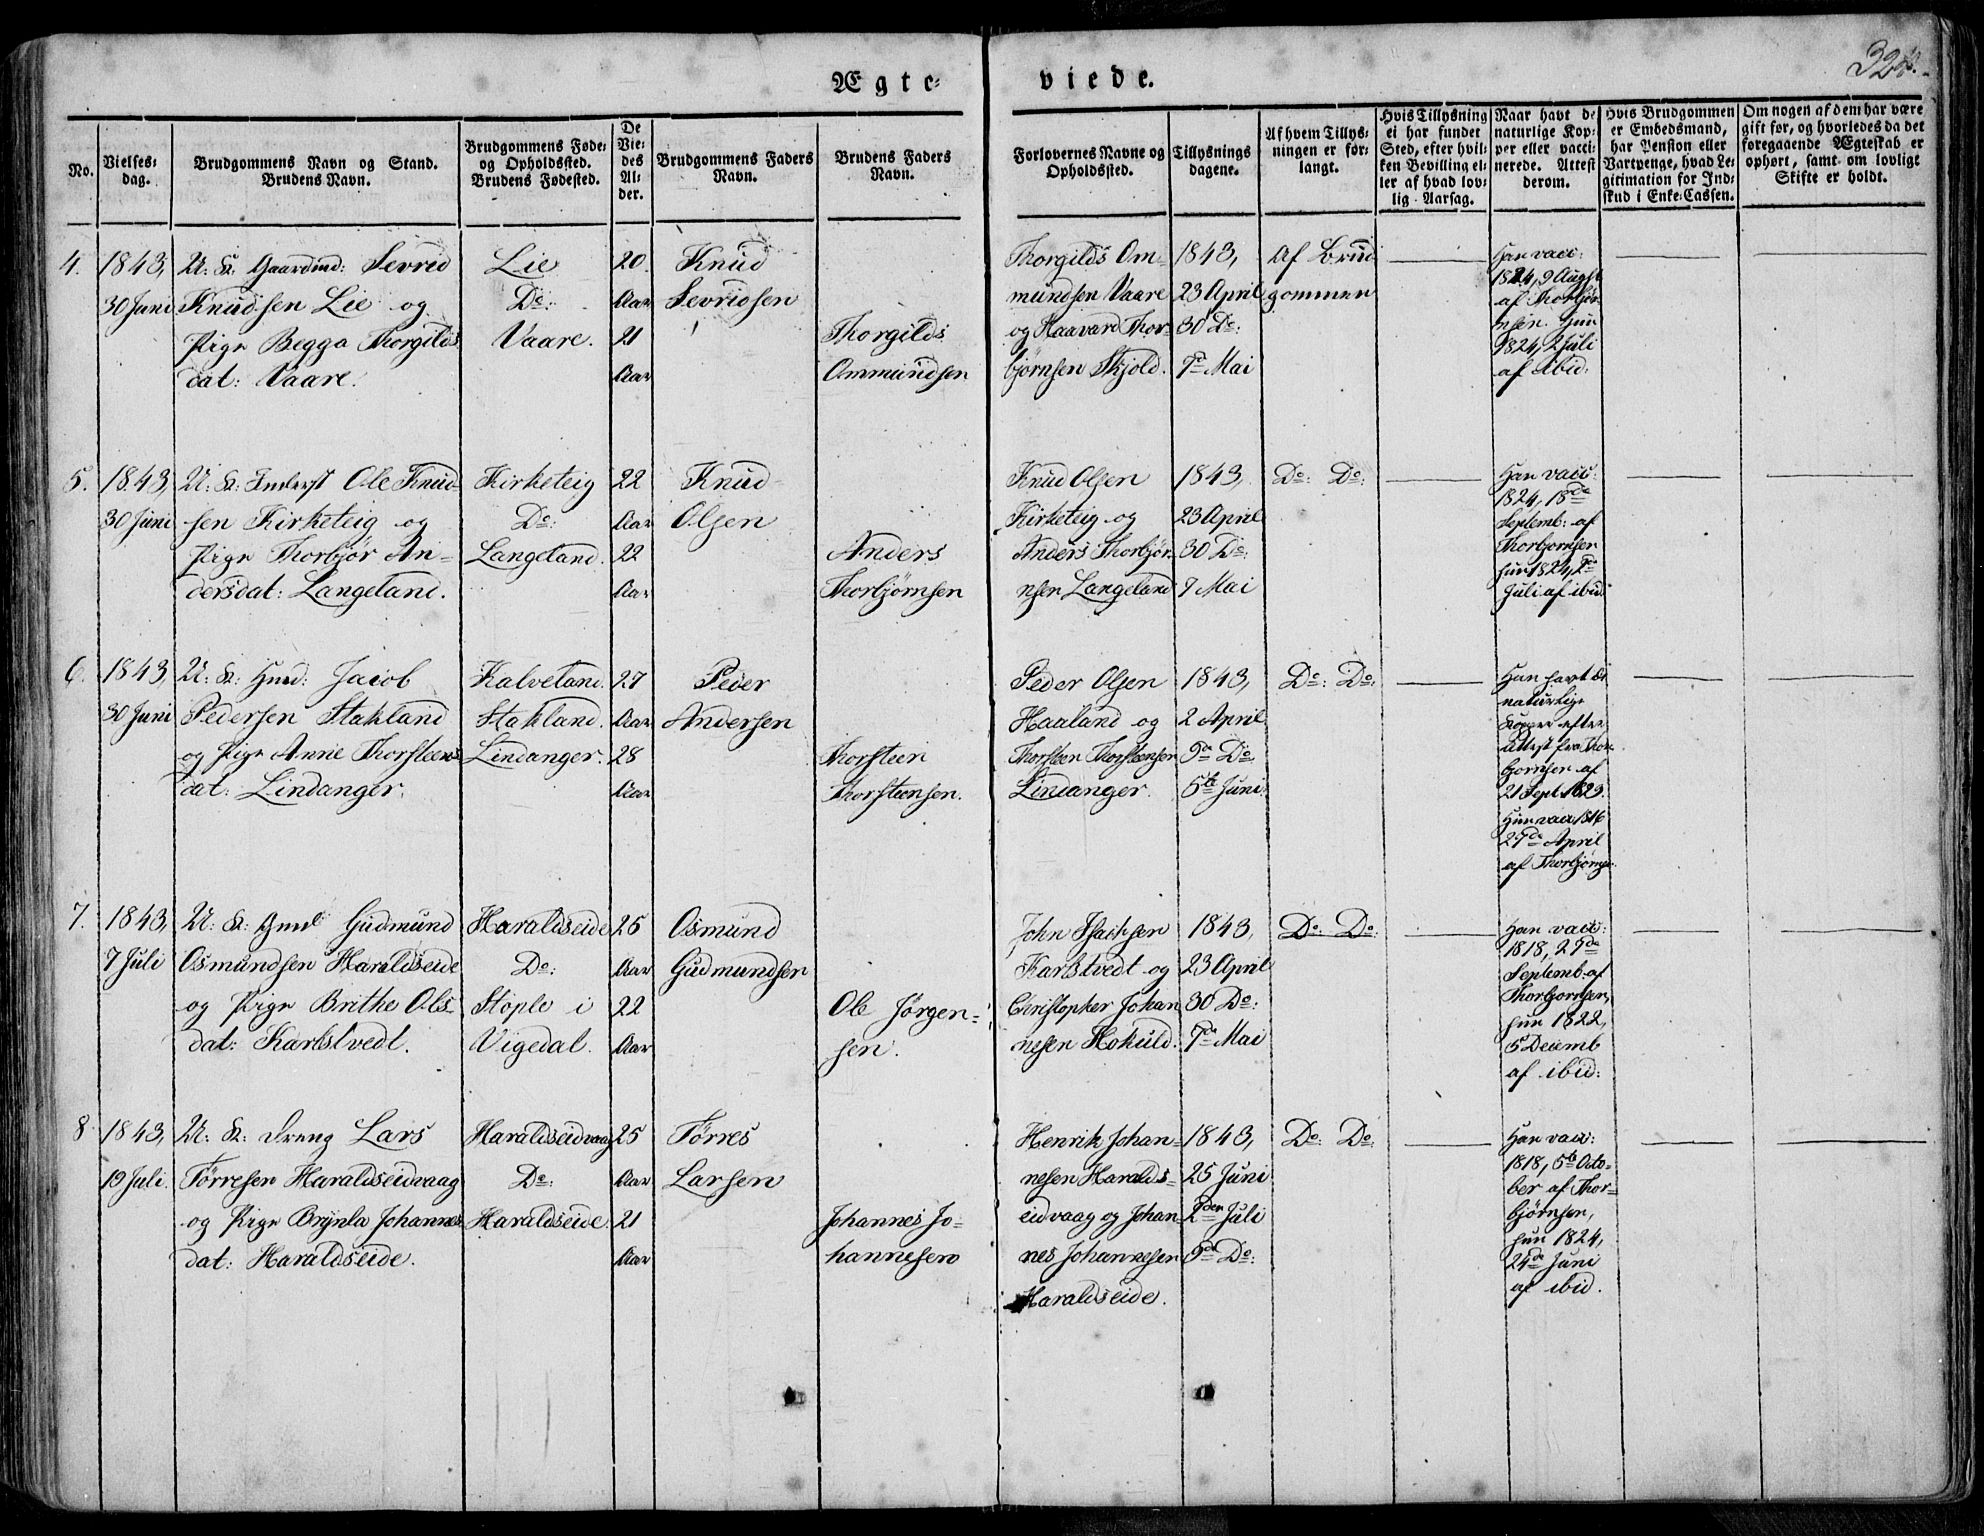 Ægte-viede.
No.
Vielses-
dag.
Brudgommens Navn og Stand.
Brudens Navn.
Brudgommens Føde-
og Opholdssted.
Brudens Fødested.
De
Vie-
des
Al-
der.
Brudgommens Faders
Navn.
Brudens Faders
Navn.
Forlovernes Navne og
Opholdssted.
Tillysnings
dagene.
Af hvem Tillys-
ningen er for-
langt.
Hvis Tillysning
ei har fundet
Sted, efter hvil-
ken Bevilling el-
ler af hvad lov-
lig Aarsag.
Naar havt de
naturlige Kop-
per eller vacci-
nerede. Attest
derom.
Hvis Brudgommen
er Embedsmand,
har Pension eller
Vartpenge, hvad Le-
gitimation for Ind-
skud i Enke-Cassen.
Om nogen af dem har være
gift før, og hvorledes da det
foregaaende Ægteskab er
ophørt, samt om lovligt
Skifte er holdt.
4.
1843,
30 Juni
U: K: Gaardmd: Sevrid
Knudsen Lie og
Pige Begga Thorgilds
dat: Vaare.
Lie
Do:
Vaare.
20
Aar
21
Aar
Knud
Sevridsen
Thorgilds
Ommundsen
Thorgilds Om-
mundsen Vaare
og Haavard Thor-
bjørnsen Skjold.
1843,
23 April
30 Do:
7de Mai
Af Brud
gommen
Han vacc:
1824, 9 August
af Thorbjør
nsen. Hun
1824, 2 Juli
af ibid:
5.
1843,
30 Juni
U: K: Inderst Ole Knud-
sen Kirketeig og
Pige Thorbjør An-
dersdat: Langeland.
Kirketeig
Do:
Langeland.
22
Aar
22
Aar
Knud
Olsen
Anders
Thorbjørnsen
Knud Olsen
Kirketeig og
Anders Thorbjør-
nsen Langeland
1843,
23 April
30 Do:
7 Mai
Do: Do:
Han vacc:
1824, 18de
Septemb: af
Thorbjornsen
hun 1824, 2de
Juli af ibid:
6.
1843,
30 Juni
U: K: Jacob
Pedersen Stakland
og Pige Anne Thorsteens
dat: Lindanger.
Kalveland.
Stakland.
Lindanger.
27
Aar
28
Aar
Peder
Andersen
Thorsteen
Thorsteensen.
Peder Olsen
Haaland og
Thorsteen Thorsteensen
Lindanger.
1843,
2 April
9de Do
5te Juni
Do: Do:
Han havt de
naturlige
Kopper efter
Attest fra Thor-
bjornsen af
21 Sept. 1829.
Hun vacc 1816
27de April
af Thorbjørnse
7.
1843,
7 Juli
U: K: Gudmund
Osmundsen Haraldseide
og Pige Brithe Ols-
dat: Karlstvedt.
Haraldseide
Do:
Stople i
Vigedal.
25
Aar
22
Aar
Osmund
Gudmundsen
Ole Jørgen-
sen.
John Isachsen
Karlstvedt og
Christopher Johan
nesen Hokuld.
1843,
23 April
30 Do:
7de Mai
Do: Do:
Han vacc:
1818, 27de
Septemb. af
Thorbjornsen,
hun 1822,
5 Decemb
af ibid:
8
1843,
19 Juli.
U: K: Dreng Lars
Tørresen Haraldseidvaag
og Pige Brynla Johannes
dat: Haraldseide.
Haraldseidvaag
Do:
Haraldseide
25
Aar
21
Aar
Tørres
Larsen
Johannes Jo-
hannesen
Henrik Johan-
nesen Haralds-
eidvaag og Johan-
nes Johannesen
Haraldseide.
1843,
25 Juni
2den Juli
9de Do:
Do: Do:
Han vacc:
1818, 5te Octo-
ber af Thor-
bjørnsen,
hun 1824,
24de Juni
af ibid.